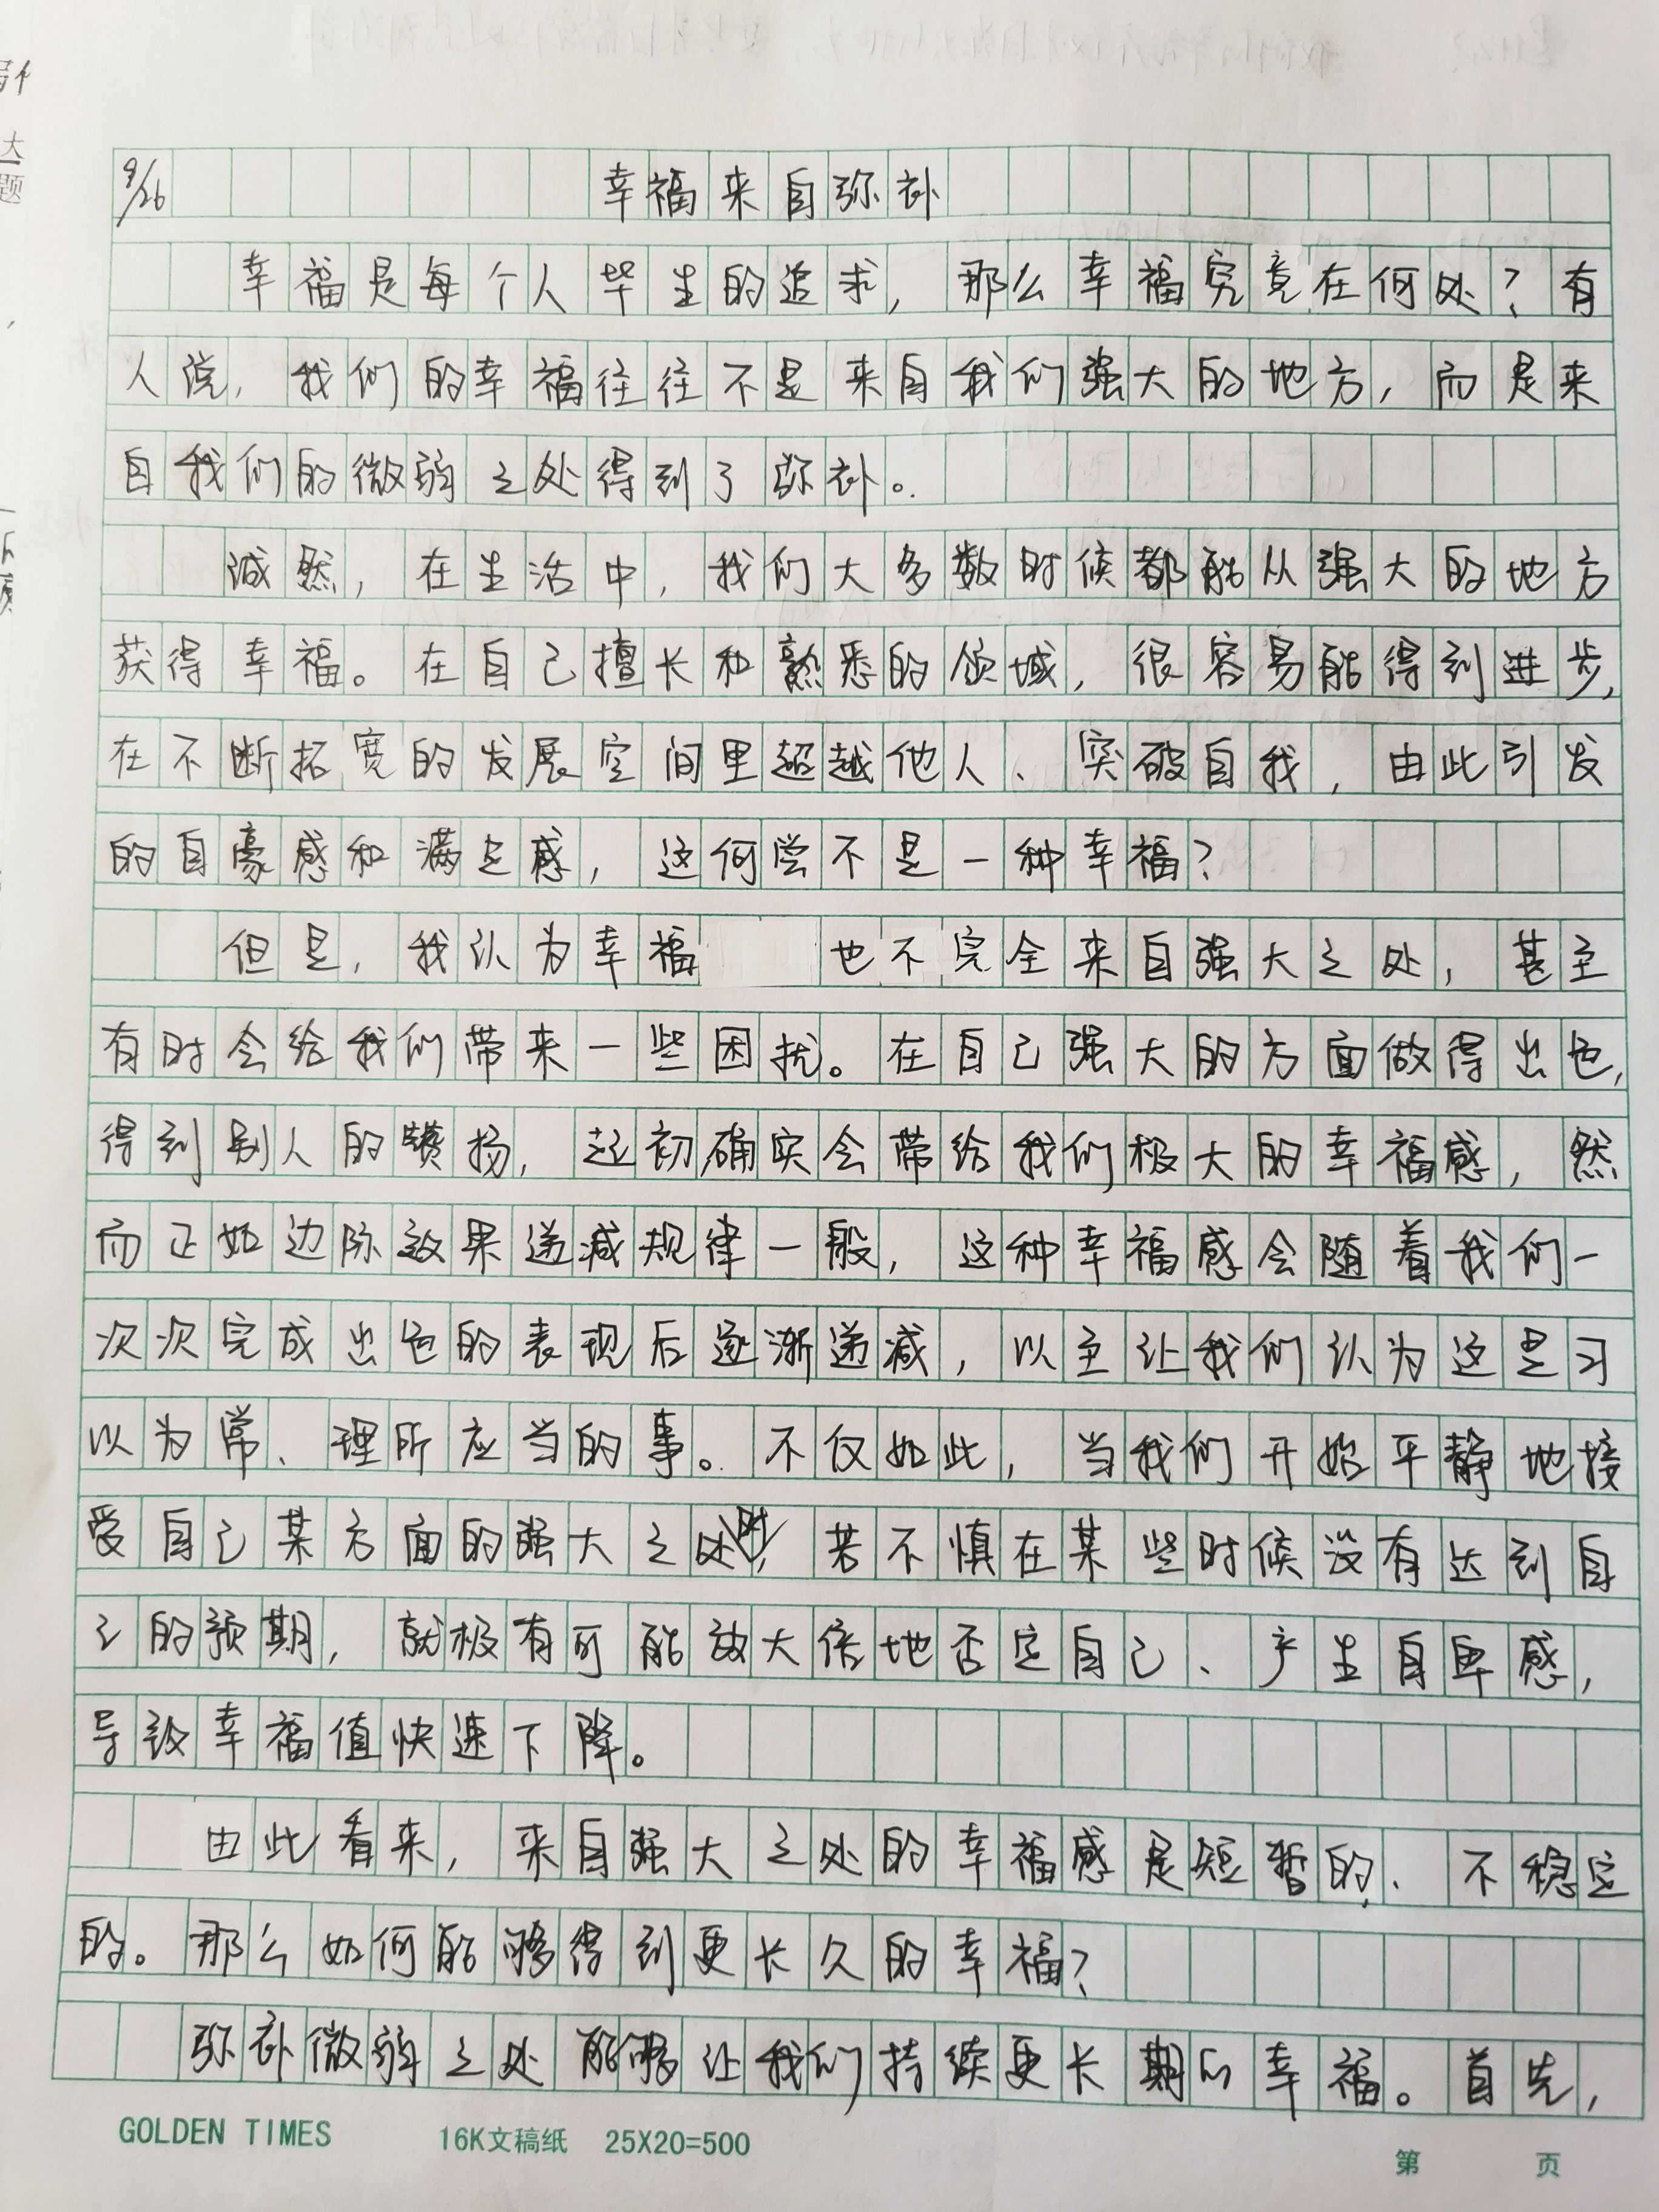 9/26 幸福来自弥补
幸福是每个人毕生的追求，那么幸福究竟在何处？有
人说，我们的幸福往往不是来自我们强大的地方，而是来
自我们的微弱之处得到了弥补。
诚然，在生活中，我们大多数时候都能从强大的地方
获得幸福。在自己擅长和熟悉的领域，很容易能得到进步，
在不断拓宽的发展空间里超越他人、突破自我，由此引发
的自豪感和满足感，这何尝不是一种幸福？
但是，我认为幸福也不完全来自强大之处，甚至
有时会给我们带来一些困扰。在自己强大的方面做得出色，
得到别人的赞扬，起初确实会带给我们极大的幸福感，然
而正如边际效果递减规律一般，这种幸福感会随着我们一
次次完成出色的表现后逐渐递减，以至让我们认为这是习
以为常、理所应当的事。不仅如此，当我们开始平静地接
受自己某方面的强大之处时，若不慎在某些时候没有达到自
己的预期，就极有可能放大倍地否定自己、产生自卑感，
导致幸福值快速下降。
由此看来，来自强大之处的幸福感是短暂的、不稳定
的。那么如何能够得到更长久的幸福？
弥补微弱之处能够让我们持续更长期的幸福。首先，
GOLDEN TIMES 16K文稿纸 25X20=500
第 页